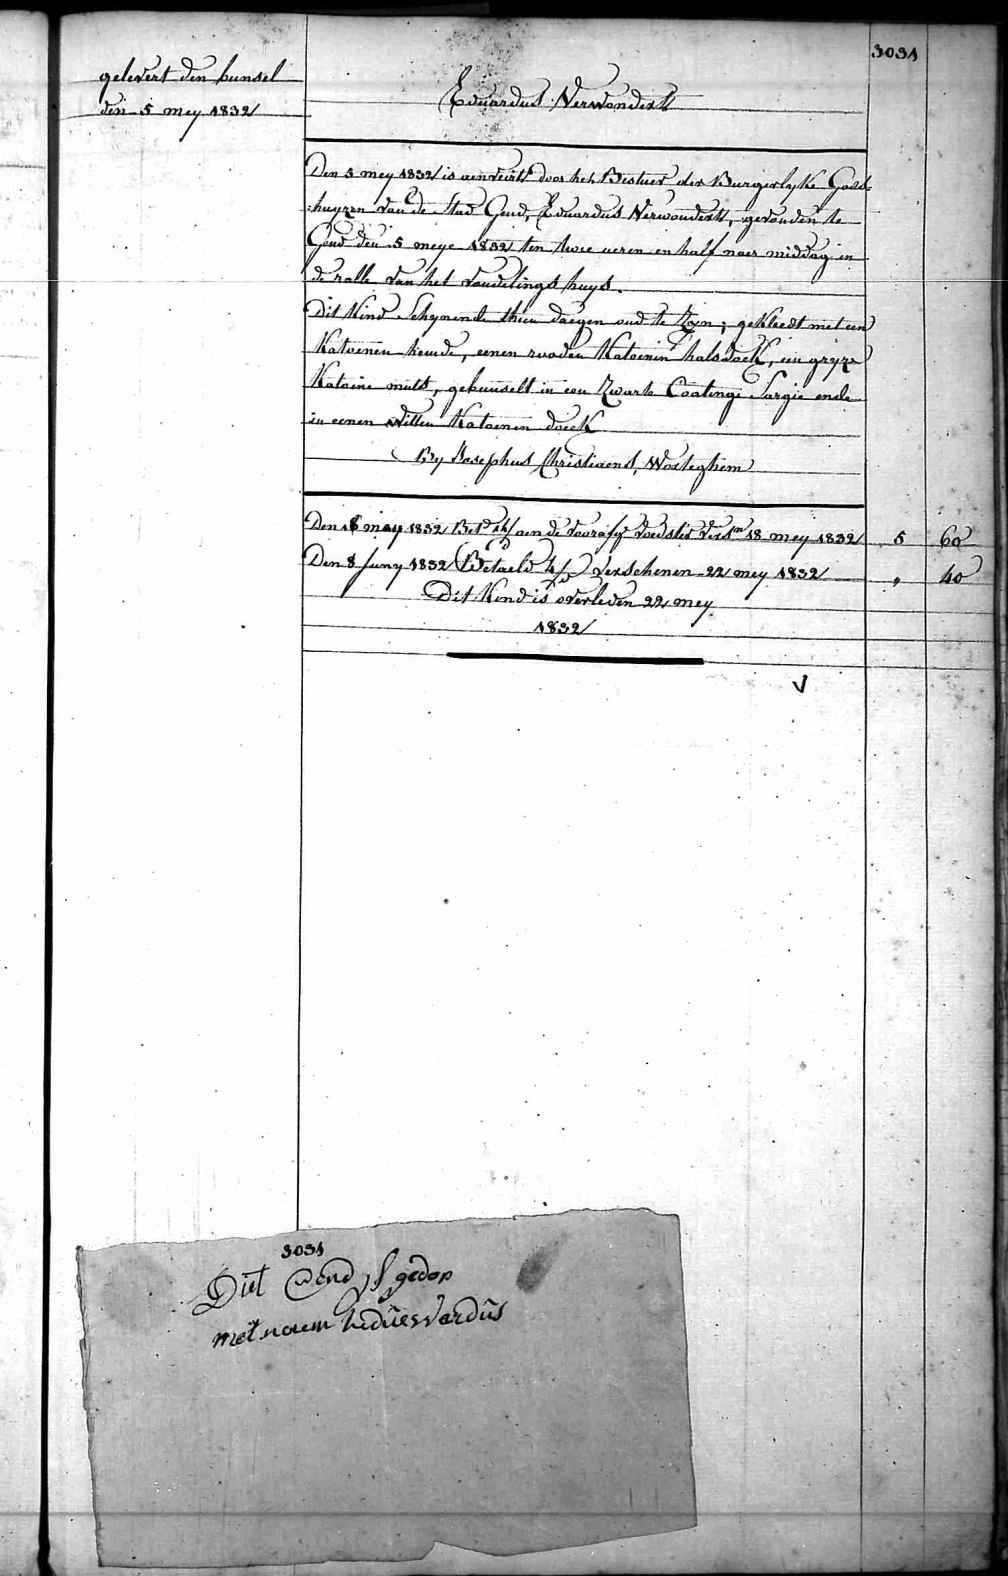 3031
gelevert den bunsel
den 5 mey 1832
Eduardus Verwondert
Den 5 mey 1832 is aenveirt door het Bestuer der Burgerlyke Gods
:huyzen van de Stad Gend, Eduardus Verwondert, gevonden te
Gend den 5 meye 1832 ten twee ueren en half naer middag in
de ralle van het vondelings huys.
Dit Kind Schynende thien daegen oud te Zyn; gekleedt met een
Katoenen hemde, eenen rooden Katoenen halsdoek, een gryze
Katoene muts, gebunselt in een Zwarte Coatinge Sargie ende
in eenen witten Katoenen doeck
By Josephus Christiaens, Worteghem
Den 18 may 1832 aen de voorsz voedster Vers.m 18 mey 1832 5 60
Den 8 Juny 1832 Betaeld Verschenen 22 mey 1832 " 40
Dit Kind is overleden 22 mey
1832
V
3031
Dit Cend is gedop
met naem heduewardus